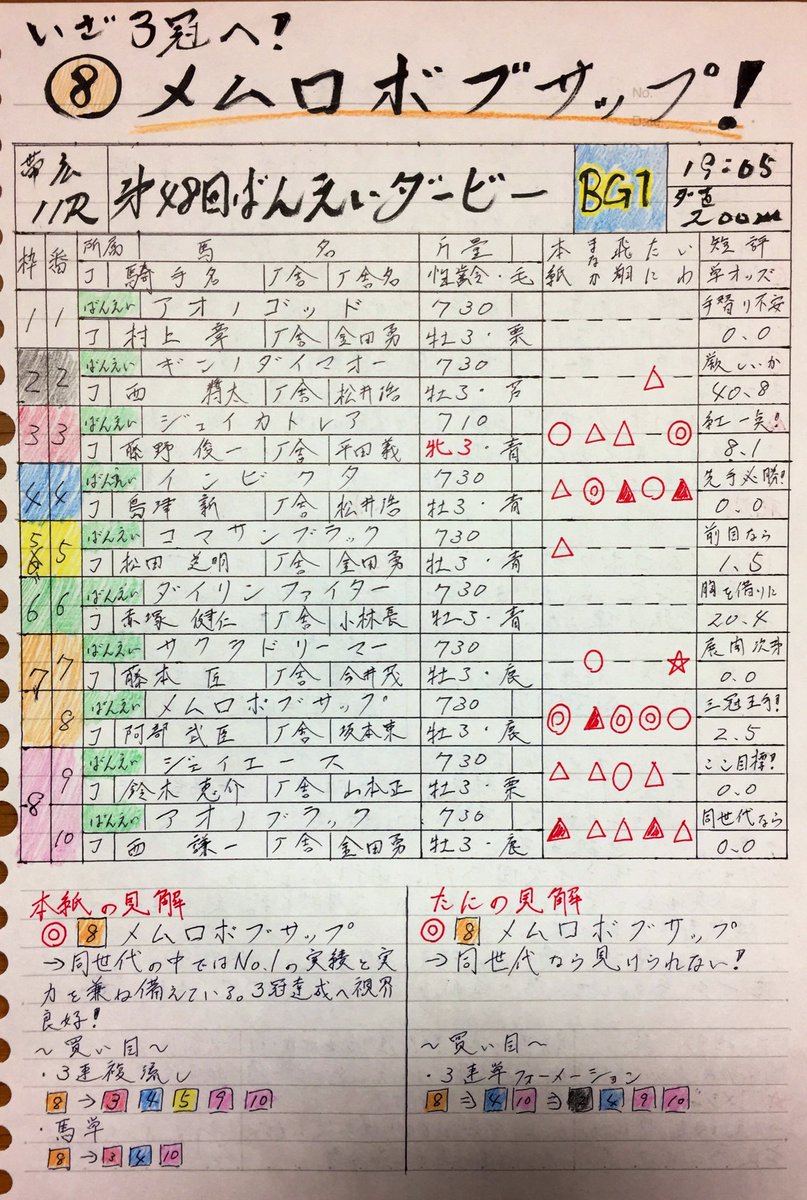 いざ3冠へ!
⑧メムロボブサップ!
No.
Date
帯広 11R 第48回ばんえいダービー BG1 19:05 ダ直200m
枠 番 所属 馬名 斤量 本紙 まなか 飛翔 たに いわ 短評
J 騎手名 厂舎 厂舎名 性齢・毛 単オッズ
1 1 ばんえい アオノゴッド 730 手替り不安
J 村上 章 厂舎 金田勇 牡3・栗 0.0
2 2 ばんえい ギンノダイマオー 730 厳しいか
J 西 将太 厂舎 松井浩 牡3・芦 ---△- 40.8
3 3 ばんえい ジェイカトレア 710 紅一点!
J 藤野 俊一 厂舎 平田義 牝3・青 ○△△-◎ 8.1
4 4 ばんえい インビクタ 730 先手必勝!
J 島津 新 厂舎 松井浩 牡3・青 △◎▲○▲ 0.0
5 5 ばんえい コマサンブラック 730 前目なら
J 松田 道明 厂舎 金田勇 牡3・青 △---- 1.5
6 6 ばんえい ダイリンファイター 730 胸を借りに
J 赤塚 健仁 厂舎 小林長 牡3・青 ----- 20.4
7 7 ばんえい サクラドリーマー 730 展開次第
J 藤本 匠 厂舎 今井茂 牡3・鹿 -○--☆ 0.0
8 ばんえい メムロボブサップ 730 三冠王手!
J 阿部 武臣 厂舎 坂本東 牡3・鹿 ◎▲◎◎○ 2.5
8 9 ばんえい ジェイエース 730 ここ目標!
J 鈴木 恵介 厂舎 山本正 牡3・栗 △△○△- 0.0
10 ばんえい アオノブラック 730 同世代なら
J 西 謙一 厂舎 金田勇 牡3・鹿 ▲△△▲△ 0.0
本紙の見解
◎ 8 メムロボブサップ
→同世代の中ではNo.1の実績と実
力を兼ね備えている。3冠達成へ視界
良好!
〜買い目〜
・3連複流し
8→3 4 5 9 10
・馬単
8→3 4 10
たにの見解
◎ 8 メムロボブサップ
→同世代なら負けられない!
〜買い目〜
・3連単フォーメーション
8⇒4 10⇒2 4 9 10